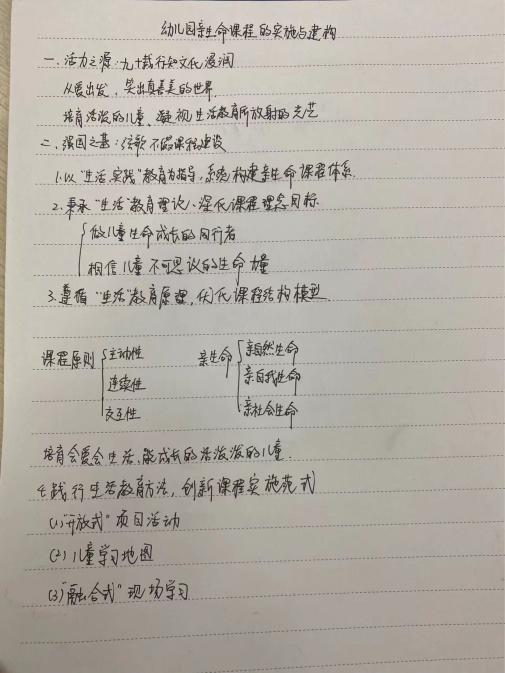 幼儿园亲生命课程的实施与建构
一、活力之源:九十载行知文化浸润
从爱出发,笑出真善美的世界
培育活泼的儿童、凝视生活教育所放射的光芒
二、强园之基:弦歌不辍课程建设
1.以"生活·实践"教育为指导,系统构建亲生命课程体系.
2.秉承"生活"教育理论、深化课程理念目标.
做儿童生命成长的同行者
相信儿童不可思议的生命力量
3.遵循"生活"教育原理,优化课程结构模型.
课程原则 主动性 亲生命 亲自然生命
连续性 亲自我生命
交互性 亲社会生命
培育会爱会生活、能成长的活泼泼的儿童.
4.践行生活教育方法,创新课程实施范式
(1)"开放式"项目活动
(2)儿童学习地图
(3)"融合式"现场学习